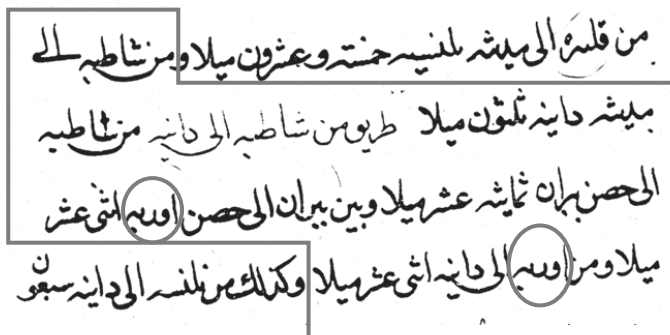 من قليره الى مدينه بلنسيه خمسه وعشرون ميلا ومن شاطبه الى
مدينه دانيه ثلثون ميلا طريق من شاطبه الى دانيه من شاطبه
الى حصن بيران ثمانيه عشر ميلا وبين بيران الى حصن اوربه اثنى عشر
ميلا ومن اوربه الى دانيه اثنى عشر ميلا وكذلك من بلنسيه الى دانيه سبعون